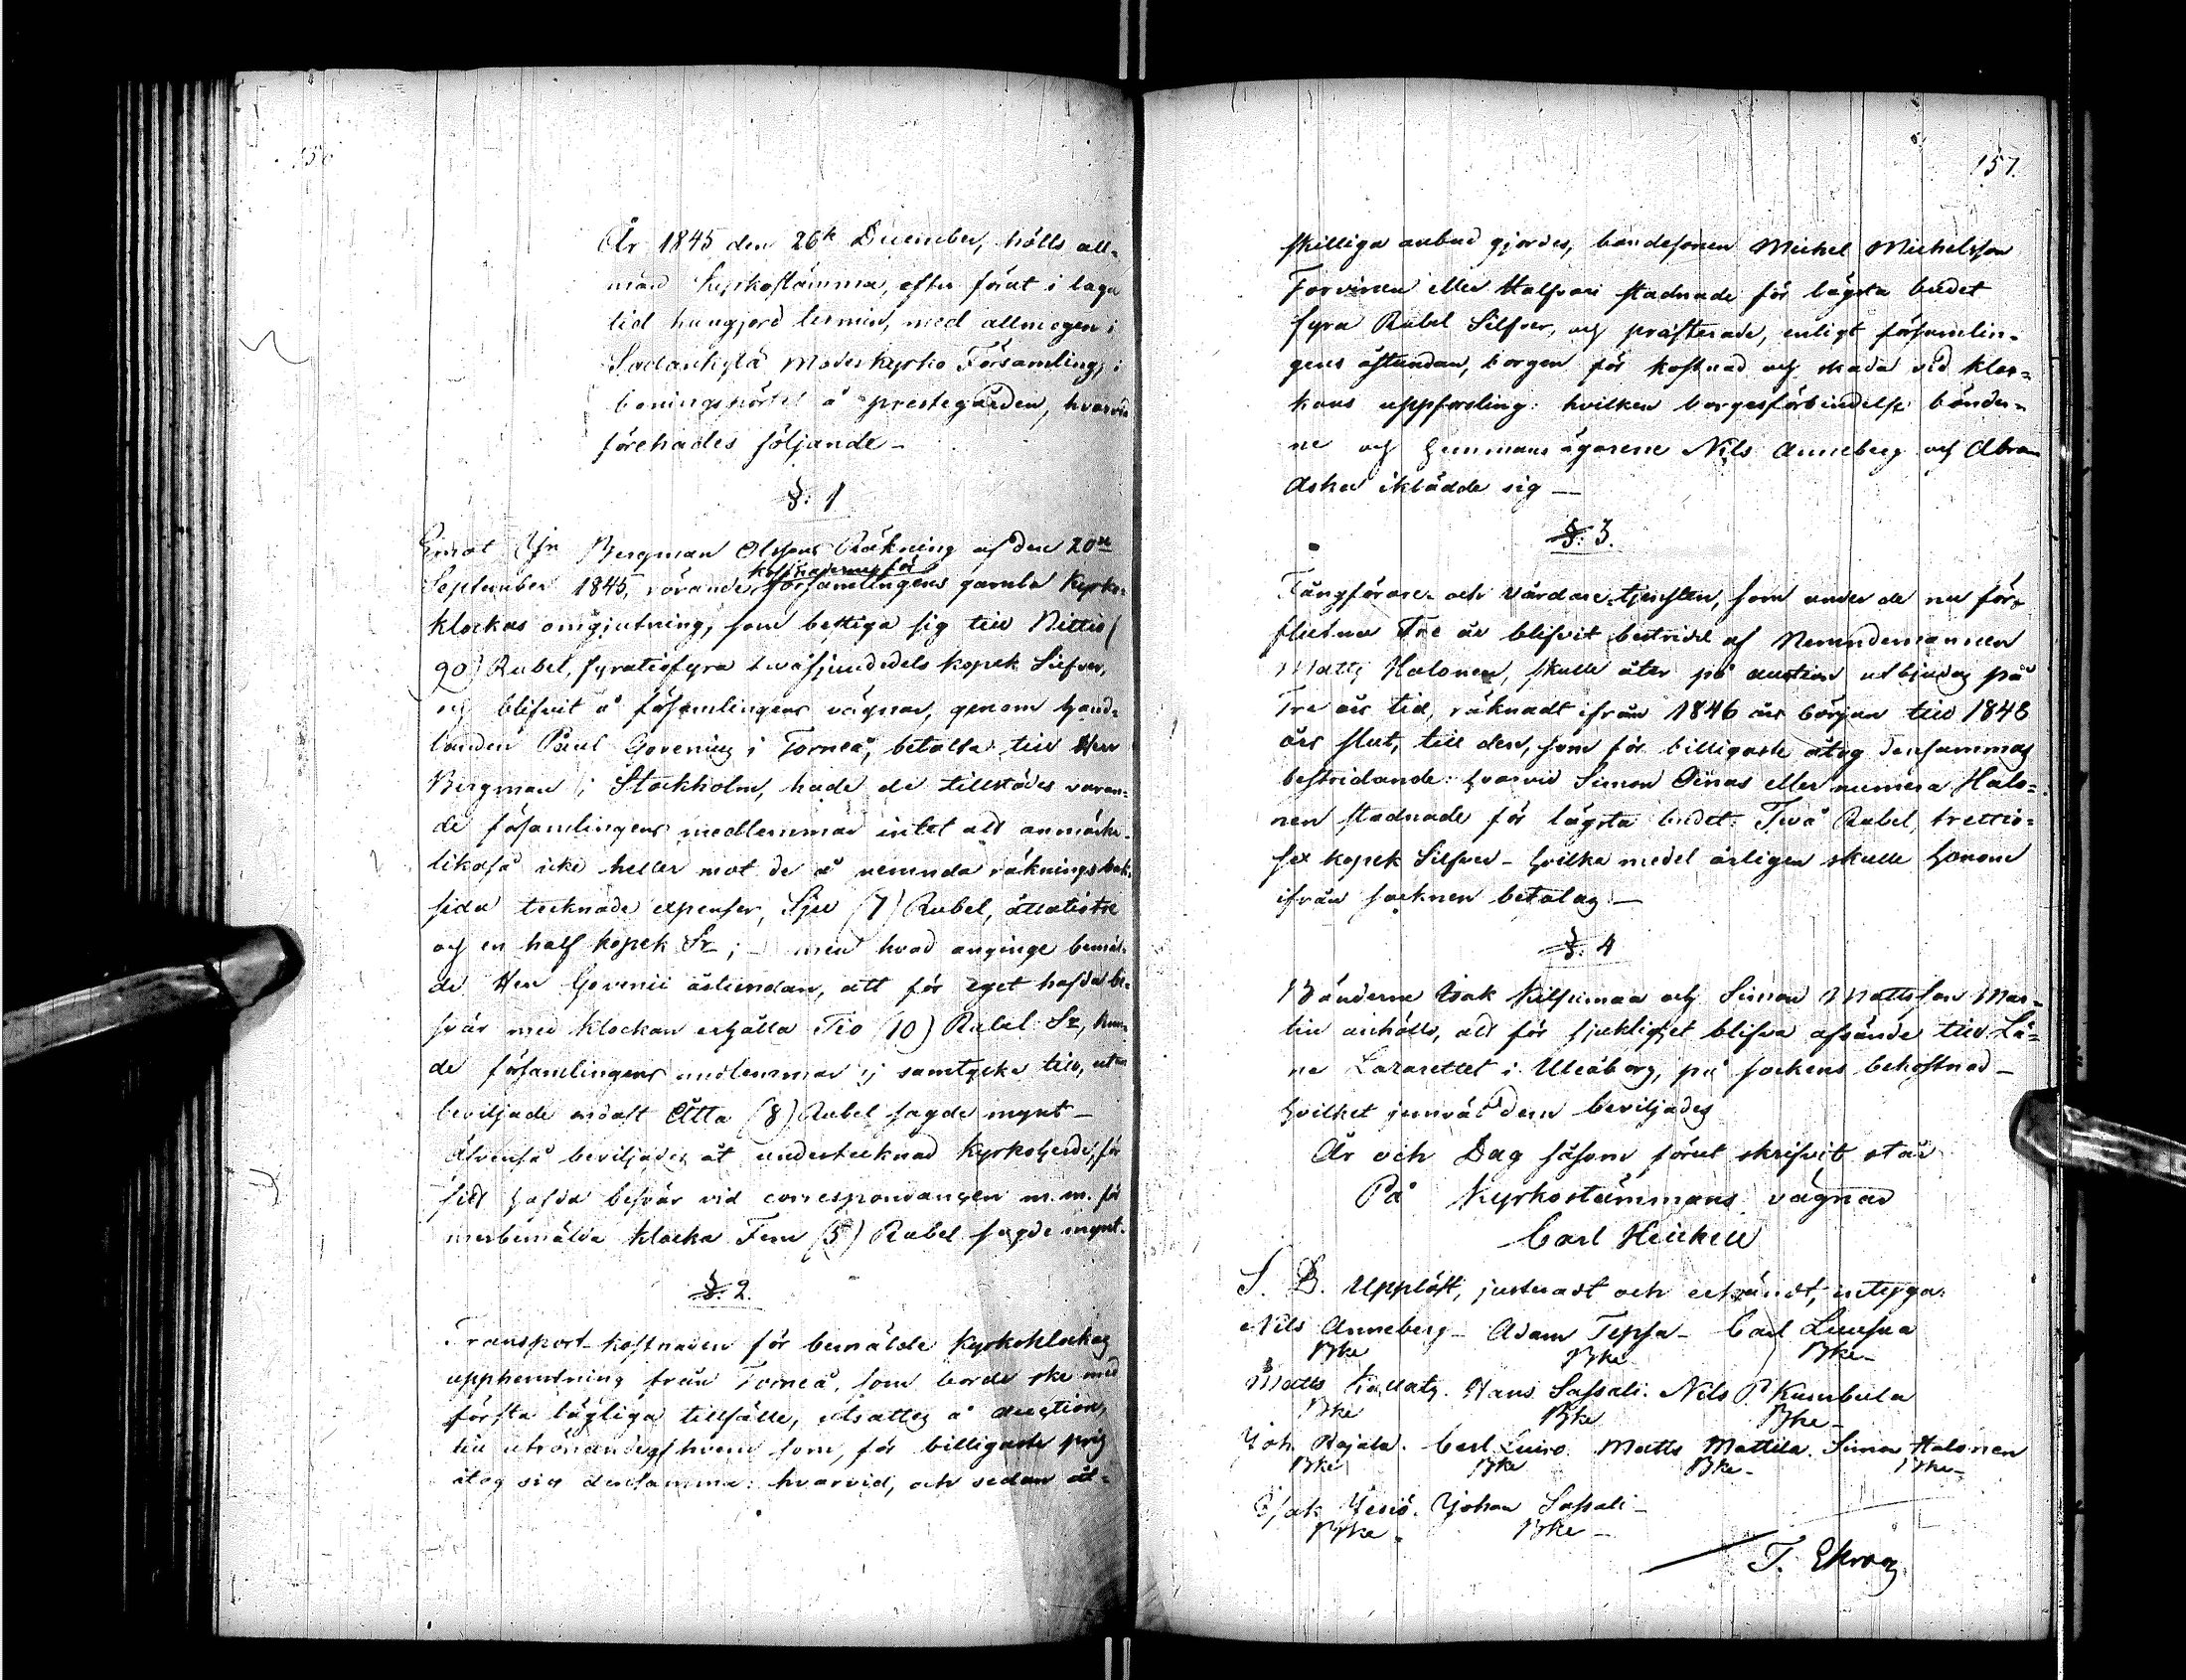 156
År 1845 den 26te December, hölls all-
män Kyrkostämma, efter förut i laga
tid kungjord termin, med allmogen i
Sodankylä Moderkyrko Församling, i
boningspörtet å prestegården, hvarvid
förehades följande –
§. 1
Emot Hr Bergman Olssons Räkning af den 20de
September 1845, rörande kostnaderne för församlingens gamla Kyrko-
klockas omgjutning, som bestiga sig till Nittio (
90) Rubel, fyratiofyra twåsjundedels kopek Silfver,
och blifvit å församlingens vägnar, genom Hand-
landen Paul Govenius i Torneå, betalta till Herr
Bergman i Stockholm, hade de tillstädes varan-
de församlingens medlemmar intet att anmärka
likaså icke heller mot de å nemnda räknings bak-
sida tecknade expenser, Sju (7) Rubel, åttatiotre
och en half kopek Sr; – men hvad anginge bemäl-
de Herr Govenii åstundan, att för eget hafda be-
svär med klockan erhålla Tio (10) Rubel Sr, kun-
de församlingens medlemmar ej samtycka till, utan
beviljade endast Åtta (8) Rubel sagde mynt –
Äfvenså beviljades åt undertecknad Kyrkoherde, för
sitt hafda besvär vid correspondancen m. m. för
merbemälda klocka Fem (5) Rubel sagde mynt.
§. 2.
Transport-kostnaden för bemälde Kyrkoklockas
upphemtning från Torneå, som borde ske med
första lägliga tillfälle, utsattes å auction,
till utrönande af hvem som, för billigaste pris
åtog sig densamma: hvarvid, och sedan åt-
157.
skilliga anbud gjordes, bondesonen Michel Michelsson
Torvinen eller Halfvari stadnade för lägsta budet
fyra Rubel Silfver, och præsterade, enligt försämlin-
gens åstundan, borgen för kostnad och skada vid kloc-
kans uppforsling: hvilken borgesförbindelse bönder-
ne och Hemmans ägarene Nils Anneberg och Abram
Asker iklädde sig –
§. 3.
Fångförare- och vårdare-tjensten, som under de nu för-
flutna Tre år blifvit bestridd af Nemndemannen
Matts Halonen, skulle åter på auction utbjudas på
Tre års tid, räknadt ifrån 1846 års början till 1848
års slut, till den, som för billigaste åtog densammas
bestridande: hvarvid Simon Oinas eller numera Halo-
nen stadnade för lägsta budet: Twå Rubel, trettio-
sex kopek Silfver – hvilka medel årligen skulle honom
ifrån socknen betalas –
§. 4
Bönderne Isak Kilfimaa och Simon Mattsson Mar-
tin anhöllo, att för sjuklighet blifva afsände till Lä-
ne Lazarettet i Uleåborg, på sockens bekostnad –
hvilket jemväl dem beviljades
År och Dag såsom förut skrifvit står
På Kyrkostämmans vägnar
Carl Heickell
S. D. Uppläst, justeradt och erkändt, intyga:
Nils Anneberg – Adam Tepsa – Carl Luusua
Bke Bke Bke –
Matts Hans Sassali. Nils P. Kumbula
Bke Bke Bke –
Joh. Rajala. Carl Luiro. Matts Mattila. Simon Halonen
Bke Bke Bke – Bke –
Isak Yesiö. Johan Sassali –
Bke Bke –